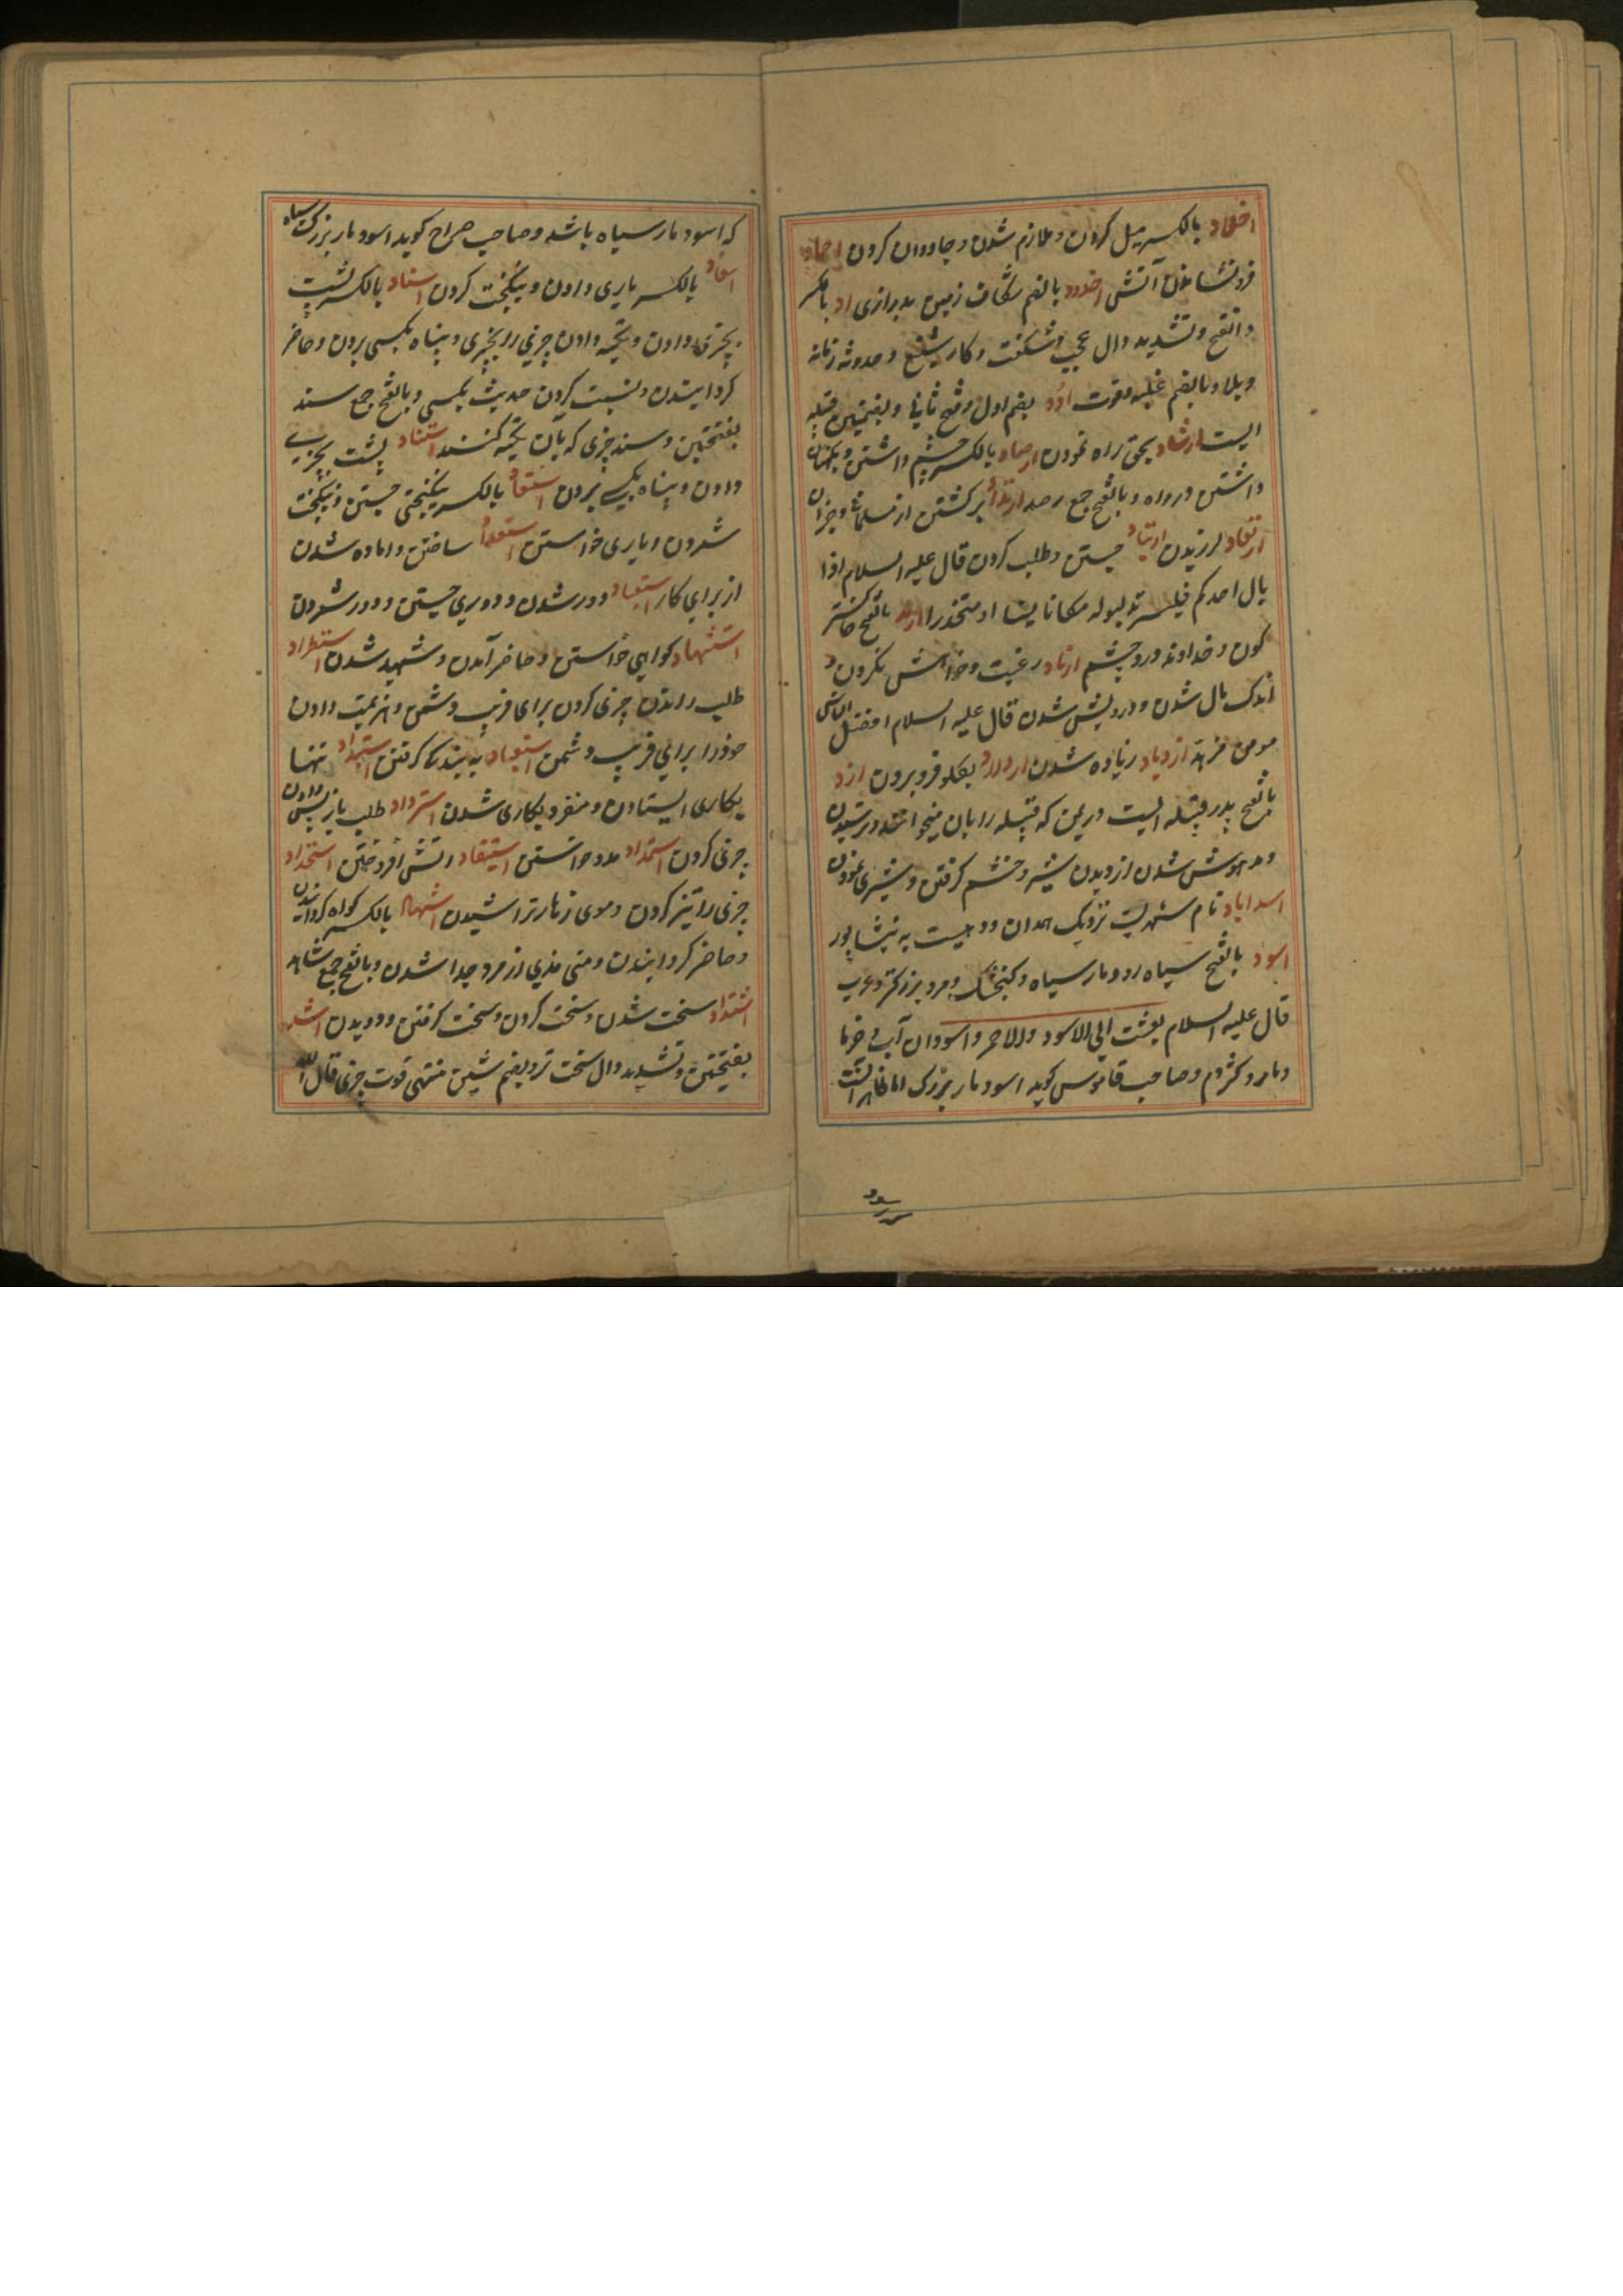 اخلاد بالکسر میل کردن و ملازم شدن و جاودان کردن اخماد
فرو نشاندن آتش اخدود بالضم شکاف زمین بدرازی اد بالکسر
و الفتح و تشدید دال عجب و شکفت و کار شنیع و حدوثه زمانه
و بلا و بالضم غلبه و قوت ادد بضم اول و فتح ثانی و بضمتین قبیله
ایست ارشاد بحق راه نمودن ارصاد بالکسر چشم داشتن و نکهبان
داشتن در راه و بالفتح جمع رصد ارتداد برکشتن از مسلمانی و جز آن
ارتعاد لرزیدن ارتیاد جستن و طلب کردن قال علیه السلام اذا
بال احدکم فلیرتد لبوله مکانا لینا او منحدرا ارمد بالفتح خاکستر
کون و خداوند درد چشم ازهاد رغبت و خواهش نکردن و
اندک مال شدن و درویش شدن قال علیه السلام افضل الناس
مومن مزهد ازدیاد زیاده شدن ازدراد بکلو فرو بردن ازد
بالفتح پدر قبیله ایست در یمن که قبیله را بان میخوانند و ترسیدن
و مدهوش شدن از دیدن شیر و خشم کرفتن و شیری نمودن
اسداباد نام شهریست نزدیک همدان و دهیست به نیشاپور
اسود بالفتح سیاه رو و مار سیاه و کنجشک و مرد بزرکتر و عرب
قال علیه السلام بعثت الی الاسود و الاحمر و اسودان آب و خرما
و مار و کژدم و صاحب قاموس کوید اسود مار بزرک اما ظاهر آنست
که اسود مار سیاه باشد و صاحب صراح کوید اسود مار بزرک سیاه
اسعاد بالکسر یاری دادن و نیکبخت کردن اسناد بالکسر پشت
بچیزی دادن و تکیه دادن چیزی را بچیزی و پناه بکسی بردن و حاضر
کردانیدن و نسبت کردن حدیث بکسی و بالفتح جمع سند
بفتحتین و سند چیزی که بآن تکیه کنند استناد پشت بچیزی
دادن و پناه بکسی بردن استسعاد بالکسر نیکبختی جستن و نیکبخت
شمردن و یاری خواستن استعداد ساختن و اماده شدن
از برای کار استبعاد دور شدن و دوری جستن و دور شمردن
استشهاد کواهی خواستن و حاضر آمدن و شهید شدن استطراد
طلب راندن چیزی کردن برای فریب دشمن و هزیمت دادن
خود را برای فریب دشمن استعباد به بندکی کرفتن استبداد تنها
بکاری ایستادن و منفرد بکاری شدن استرداد طلب باز پس دادن
چیزی کردن استمداد مدد خواستن استیقاد اتش افروختن استحداد
چیزی را تیز کردن و موی زهار تراشیدن اشهاد بالکسر کواه کردانیدن
و حاضر کردانیدن و منی مذی از مرد جدا شدن و بالفتح جمع شاهد
اشتداد سخت شدن و سخت کردن و سخت کرفتن و دویدن اشد
بفتحتین و تشدید دال سخت تر و بضم شین منتهی قوت چیزی قال الله